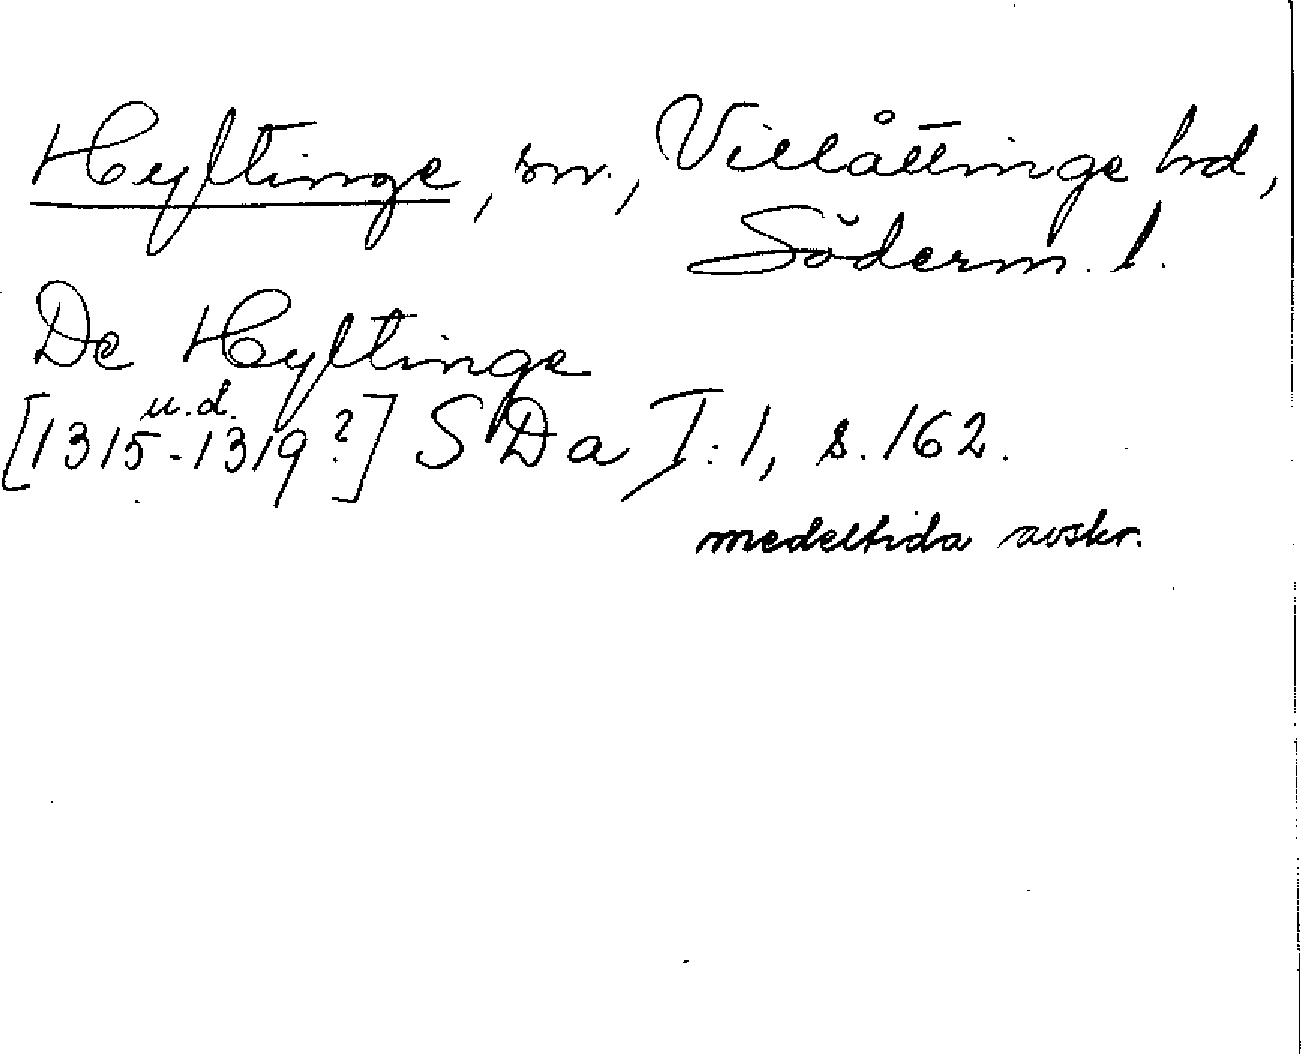 Hyltinge, sn., Villåttinge hd,
Söderm. l.
De Hyltinge
u.d.
[1315-1319?] SDa I:1, s. 162.
medeltida avskr.